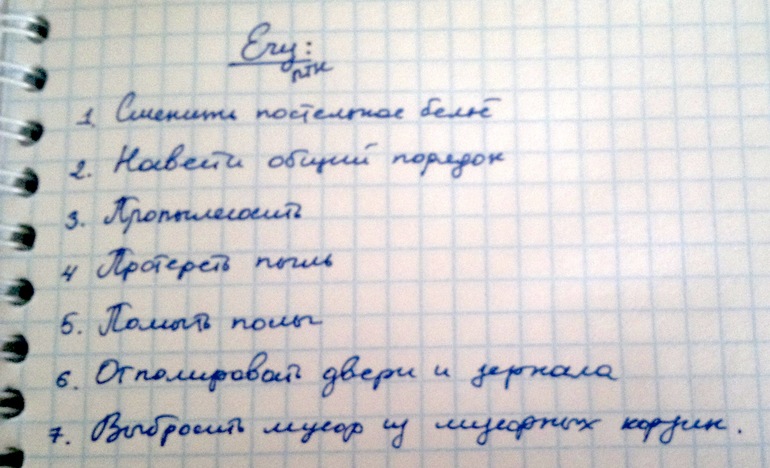 Ечу:
птн
1. Сменить постельное бельё
2. Навести общий порядок
3. Пропылесосить
4 Протереть пыль
5. Помыть полы
6. Отполировать двери и зеркала
7. Выбросить мусор из мусорных корзин.